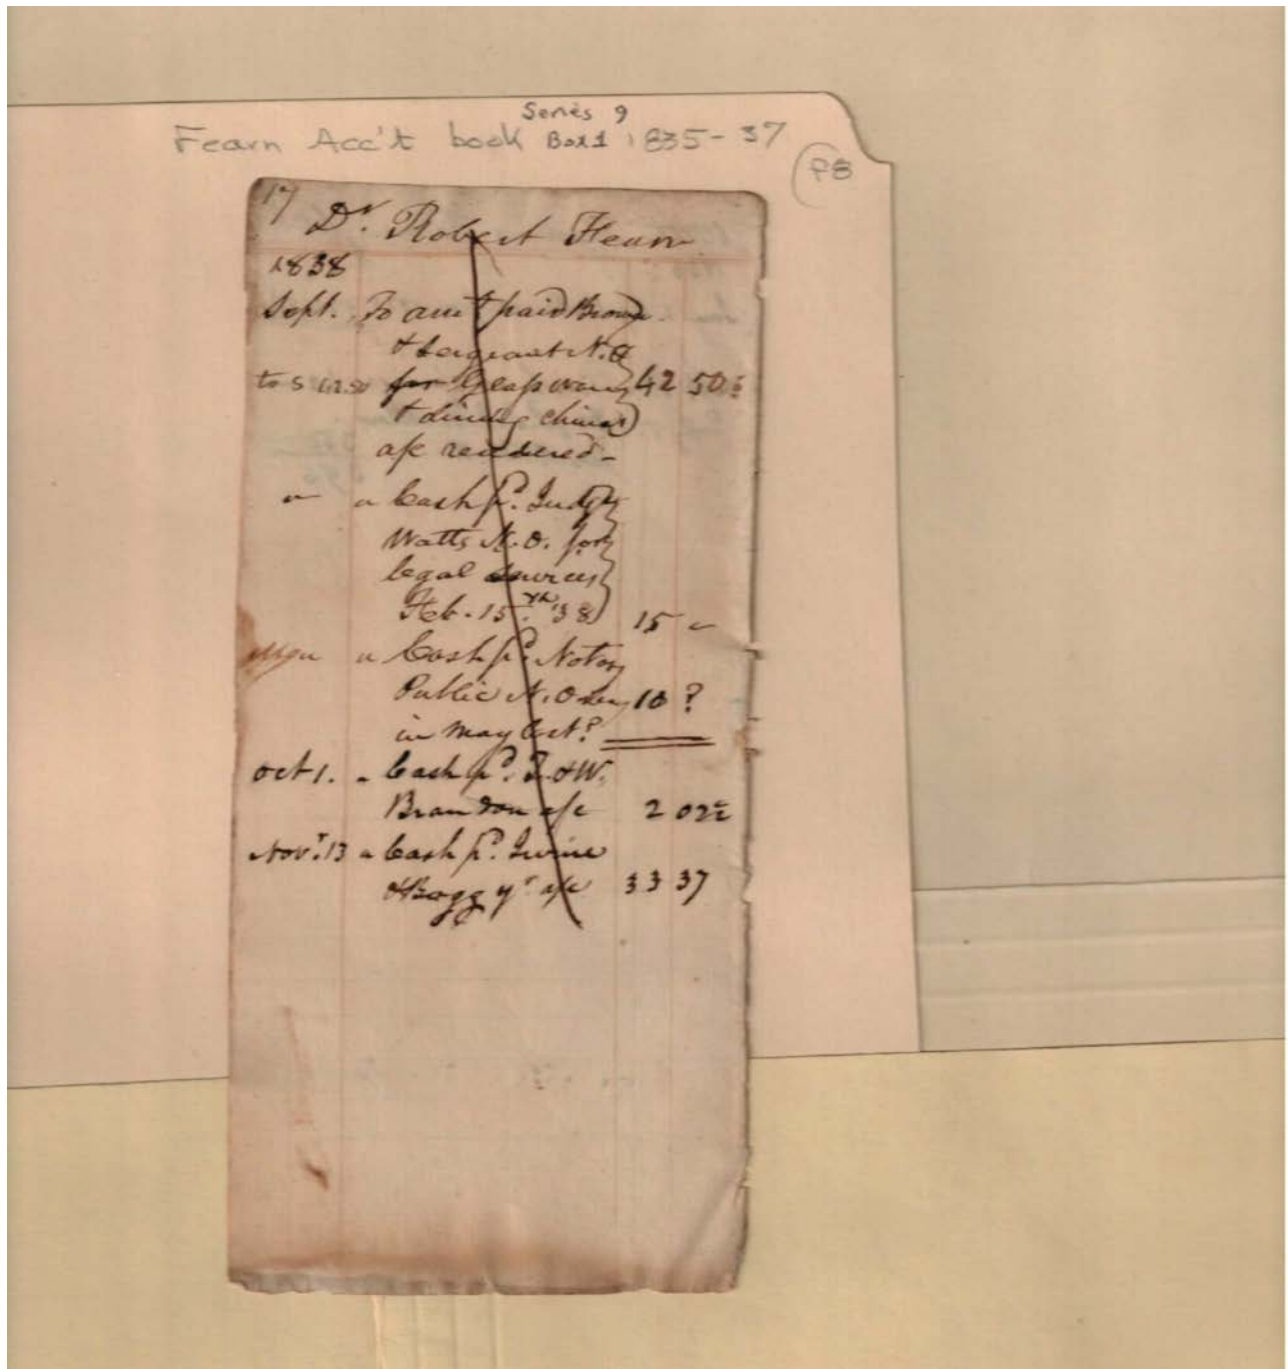 Series 9
Fearn Acc't book Box 1 1835-37
P8
17
Dr. Robert Fearn
1838
Sept. To amt paid Brown
& Sergeant N.O
for Glassware 42 50
& dining china
a/c rendered -
" " Cash pd. Judge
Watts N.O. for
legal services
Feb. 15th '38 15 "
" Cash pd. Notary
Public N.O 10 ?
in May last?
Oct 1. " Cash pd. T. & W.
Brandon a/c 2 02
Novr. 13 " Cash pd. Irvine
& Bogg yr a/c 33 37